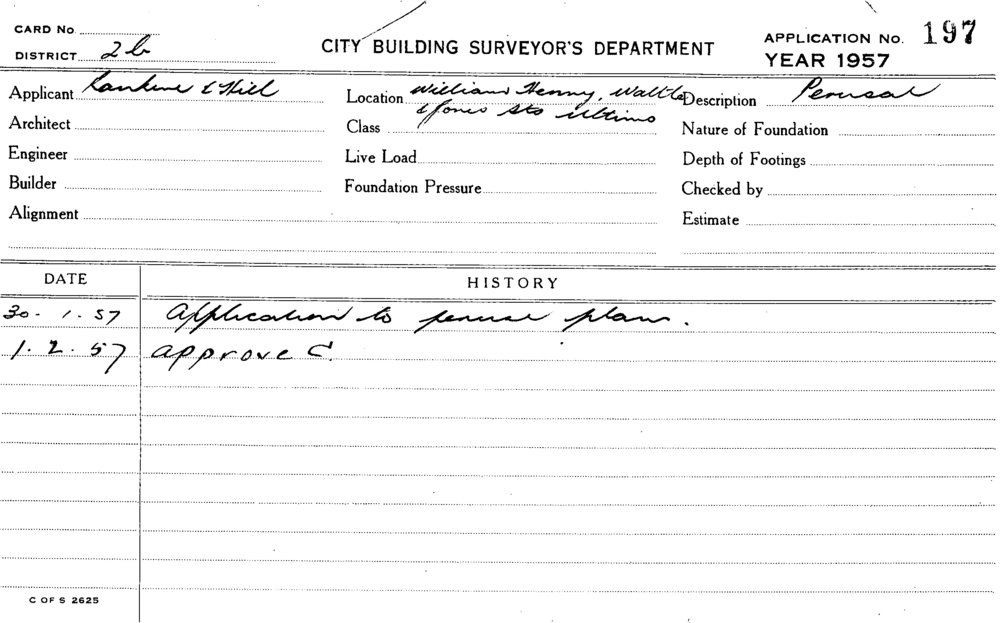 CARD No.
DISTRICT 2b
CITY BUILDING SURVEYOR'S DEPARTMENT
APPLICATION No. 197
YEAR 1957
Applicant Rankine & Hill
Location William Henry, Wattle
& Jones Sts Ultimo
Description Perusal
Architect
Class
Nature of Foundation
Engineer
Live Load
Depth of Footings
Builder
Foundation Pressure
Checked by
Alignment
Estimate
DATE HISTORY
30. 1. 57 Application to peruse plan.
1. 2. 57 approve C.
C OF S 2625